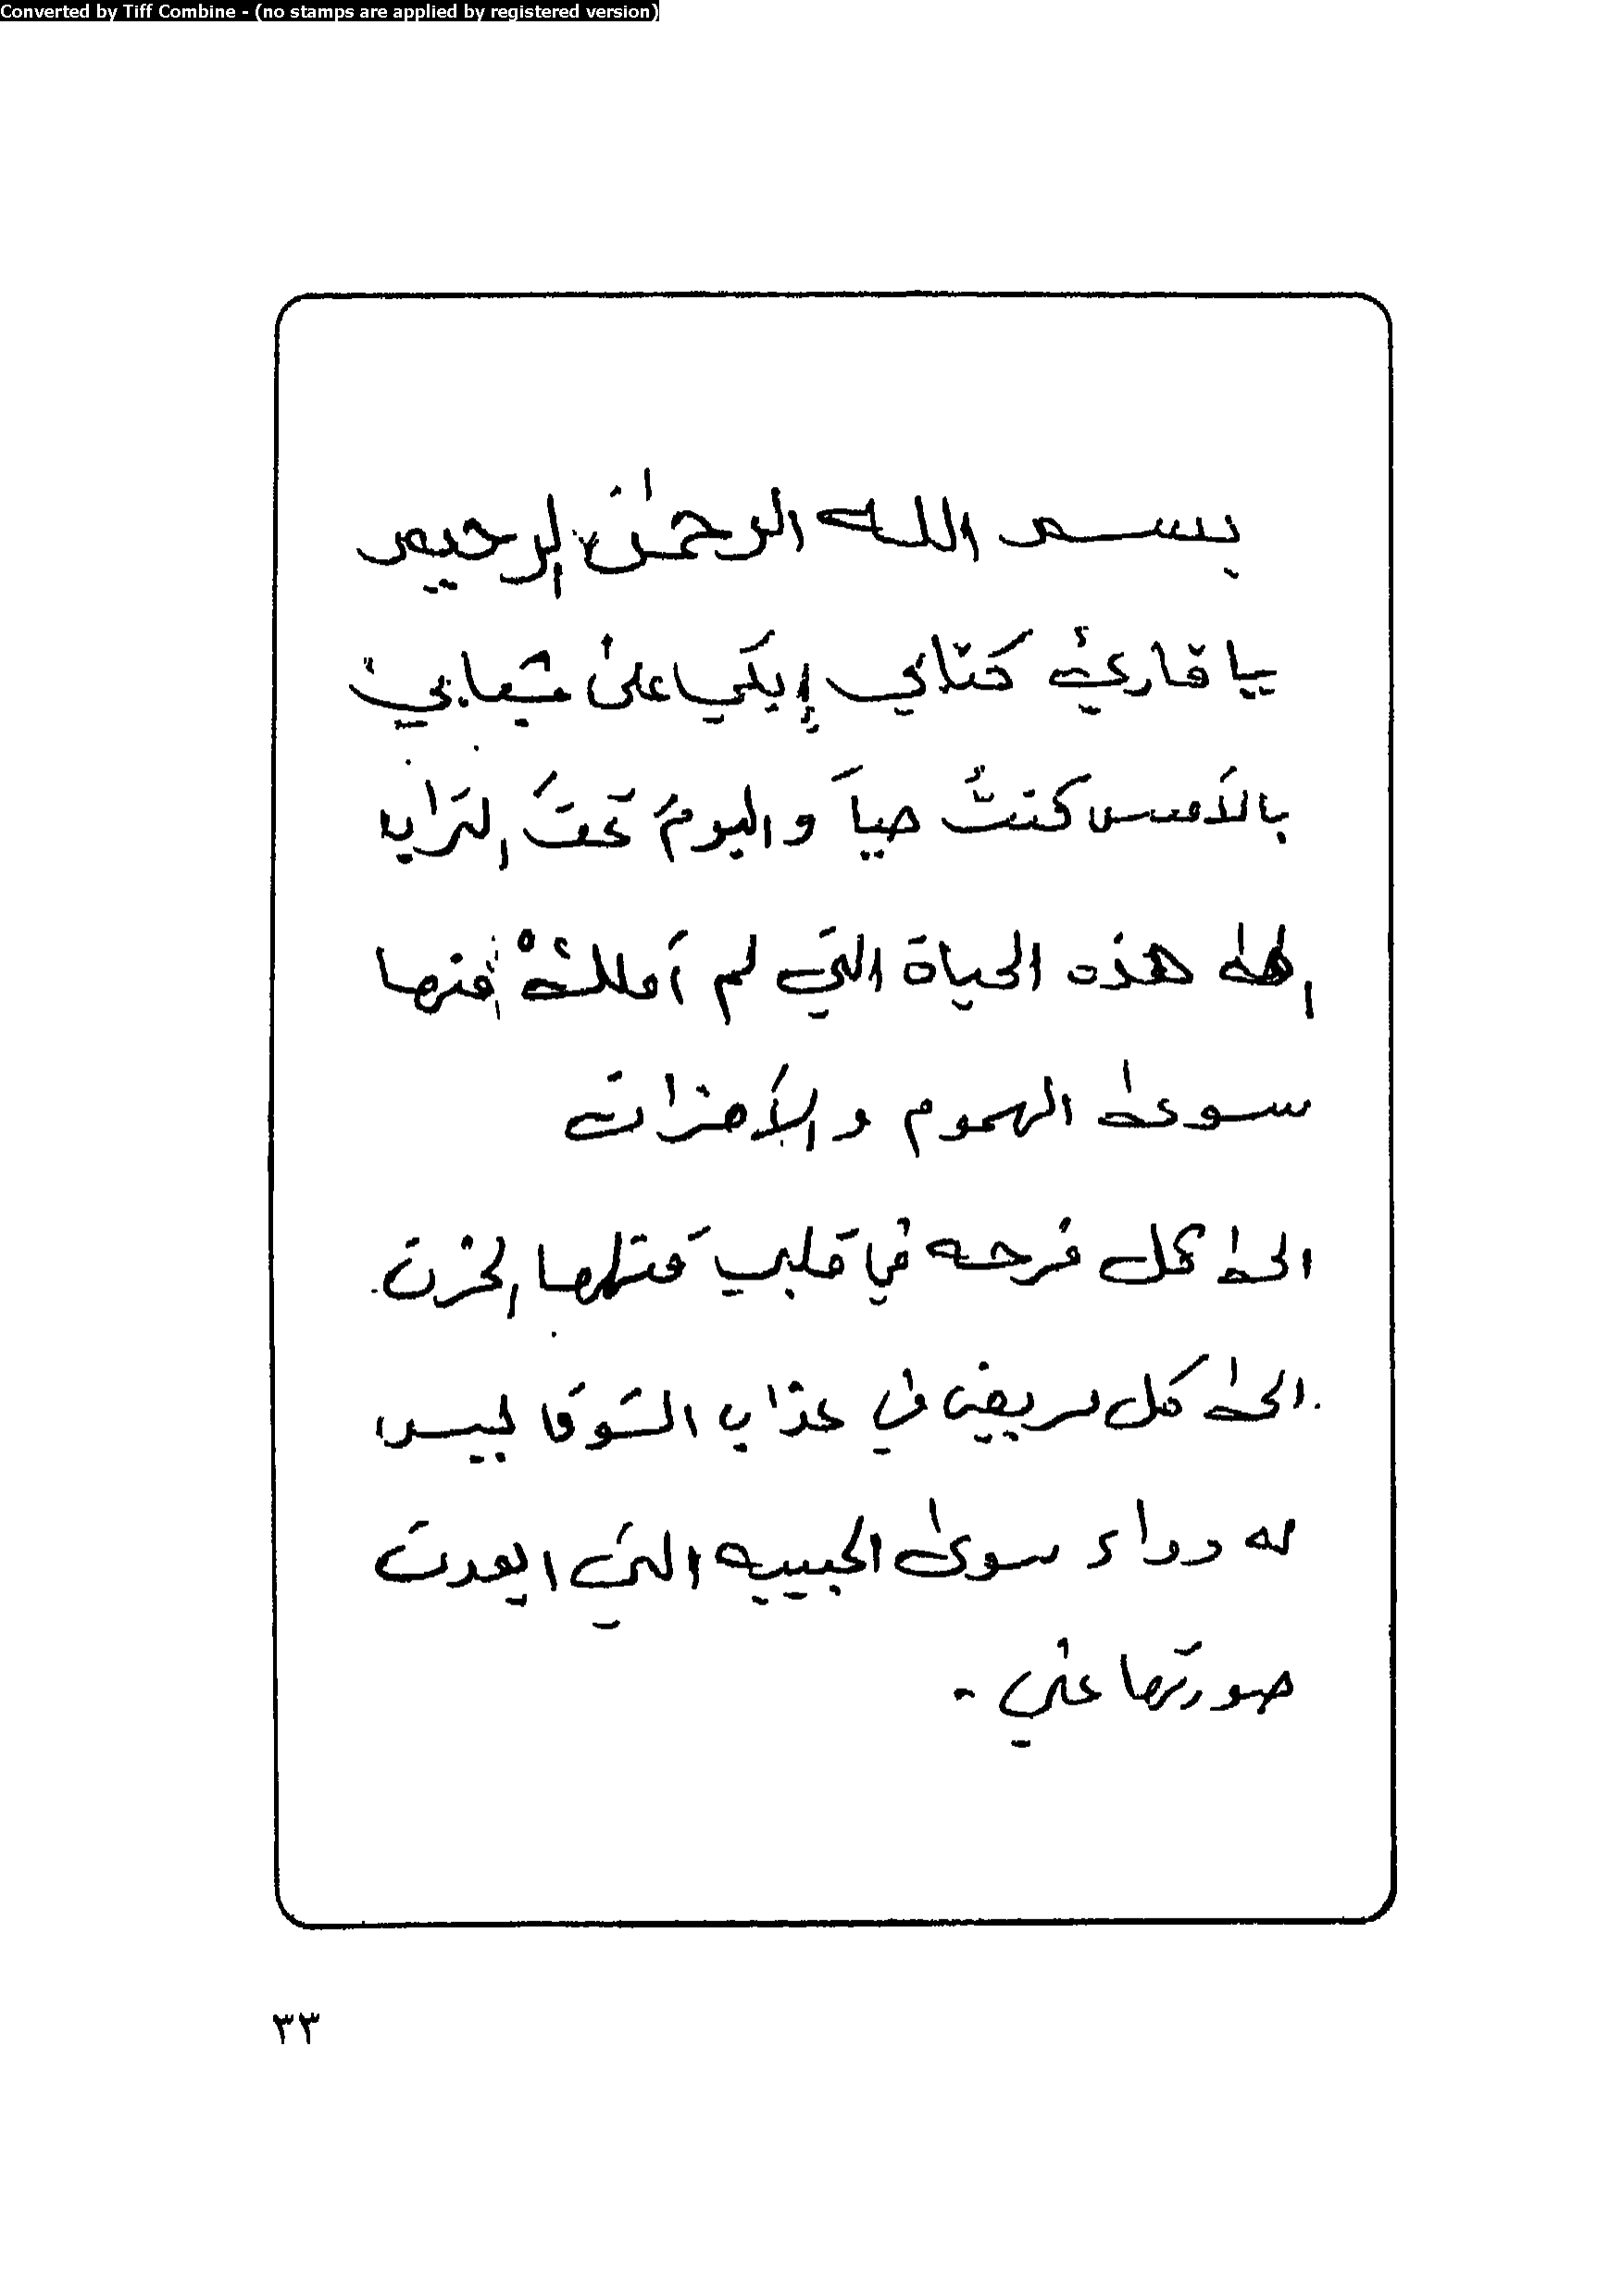 Converted by Tiff Combine - (no stamps are applied by registered version)
بسم الله الرحمن الرحيم
يا قارئ كتابي إبكي على شبابي
بالأمس كنتُ حياً واليومَ تحتَ التراب
إلى هذه الحياة التي لم أملكْ منها
سوى الهموم والأحزان
الى كل فرحه في قلبي قتلها الحزن
الى كل مريض في عذاب الشوق ليس
له دواء سوى الحبيبه التي ابعدت
صورتها عني -
٣٣